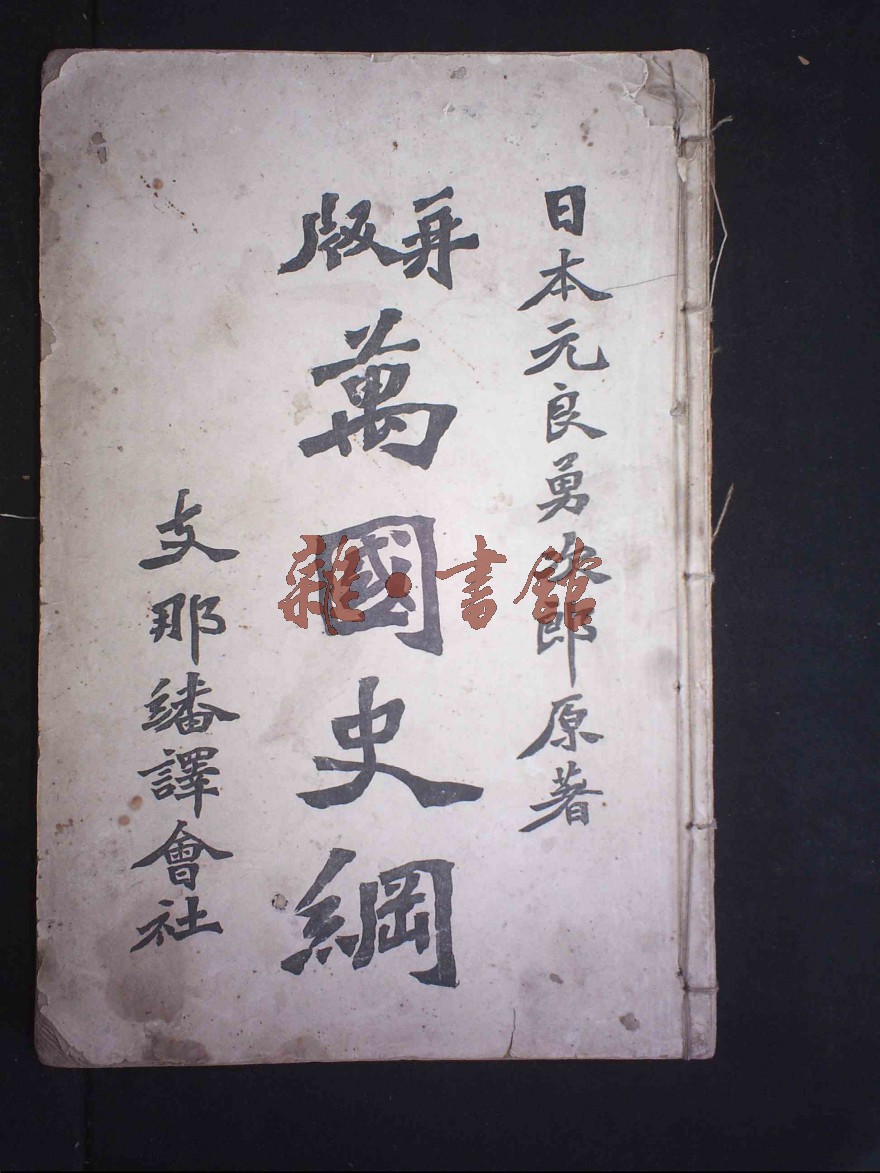 日本元良勇次郎原著
再版
萬國史綱
支那繙譯會社
雜·書館